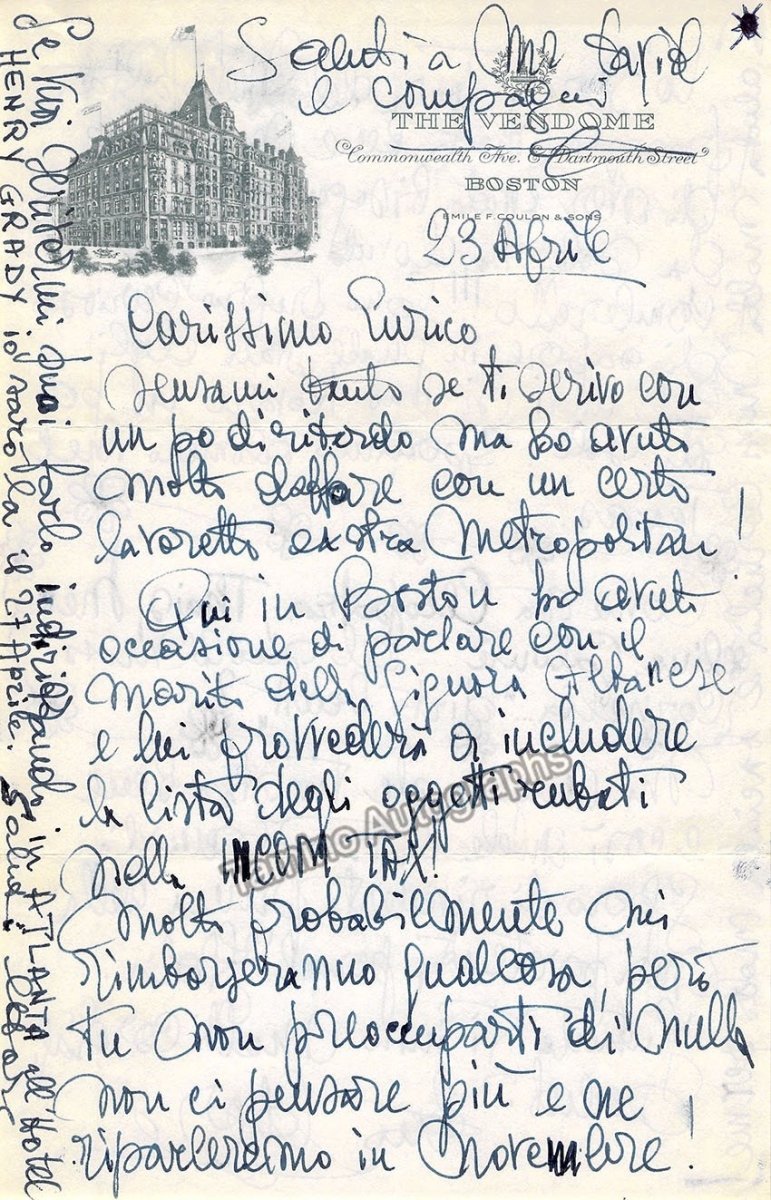 Saluti a Mr David
e compagni
THE VENDOME
Commonwealth Ave. & Dartmouth Street
BOSTON
EMILE F. COULON & SONS
23 Aprile
Carissimo Enrico
scusami tanto se ti scrivo con
un po di ritardo ma ho avuto
molto daffare con un certo
lavoretto extra Metropolitan!
Qui in Boston ho avuto
occasione di parlare con il
marito della Signora Albanese
e lui provvederà a includere
la lista degli oggetti rubati
nella INCOM TAX!
Molto probabilmente mi
rimborseranno qualcosa, però
tu non preoccuparti di nulla
non ci pensare più e ne
riparleremo in novembre!
Se vuoi scrivermi puoi farlo indirizzando in ATLANTA all'Hotel
HENRY GRADY io sarò la il 27 Aprile. Saluti Cesare
Tamino Autographs